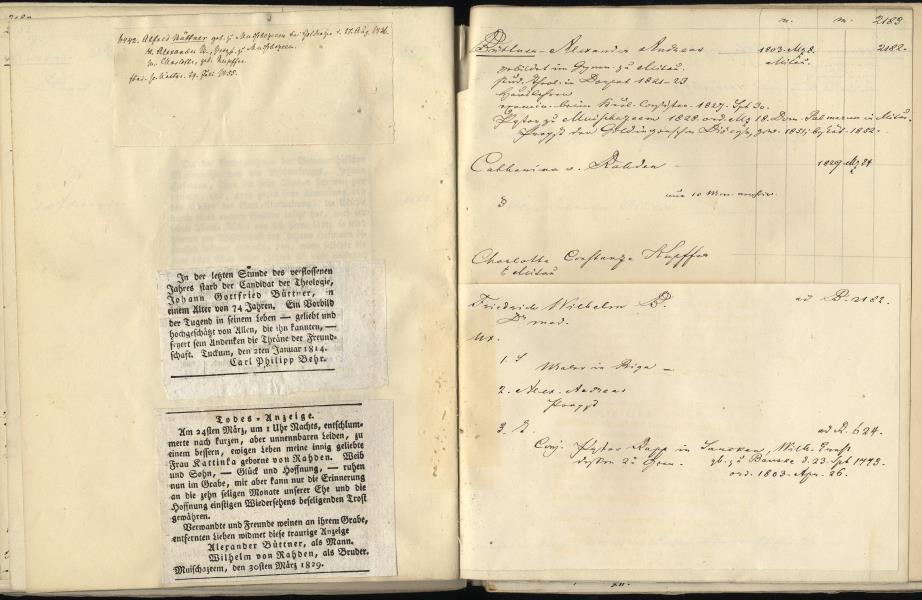 6842. Alfred Büttner geb. zu Muischazeem
M. Charlotte, geb. Kupffer.
In der letzten Stunde des verflossenen
Jahres starb der Candidat der Theologie,
Johann Gottfried Büttner, in
einem Alter von 74 Jahren. Ein Vorbild
der Tugend in seinem Leben — geliebt und
hochgeschätzt von Allen, die ihn kannten, —
feyert sein Andenken die Thräne der Freund-
schaft. Tuckum, den 2ten Januar 1814.
Carl Philipp Behr.
Todes-Anzeige.
Am 24sten März, um 1 Uhr Nachts, entschlum-
merte nach kurzen, aber unnennbaren Leiden, zu
einem bessern, ewigen Leben meine innig geliebte
Frau Kattinka geborne von Rahden. Weib
und Sohn, — Glück und Hoffnung, — ruhen
nun im Grabe, mir aber kann nur die Erinnerung
an die zehn seligen Monate unserer Ehe und die
Hoffnung einstigen Wiedersehens beseligenden Trost
gewähren.
Verwandte und Freunde weinen an ihrem Grabe,
entfernten Lieben widmet diese traurige Anzeige
Alexander Büttner, als Mann.
Wilhelm von Rahden, als Bruder.
Muischazeem, den 30sten März 1829.
2183
Büttner, Alexander Andreas 1803 Mz 8. 2182
Mitau.
gebildet im Gymn. zu Mitau.
stud. theol. in Dorpat 1821-23
Hauslehrer
examin. beim Kurl. Consistor. 1827. Spt 30.
Pastor zu Muischazeem 1828. ord. Mz 18. Dom. Palmarum in Mitau.
Propst der Goldingenschen Diöcese, 1851; 1852.
Catharina v. Rahden 1829 Mz 24
nur 10 Mon.
Charlotte Constanze Kupffer
† Mitau
Friedrich Wilhelm B. ad B. 2182.
Dr med.
ux.
1. Maler in Riga
2. Alex. Andreas
Propst
3. ad R. 624.
Conj. Pastor Rapp in
geb. zu Bauske d. 23. Spt 1773.
ord. 1803. Apr. 26.